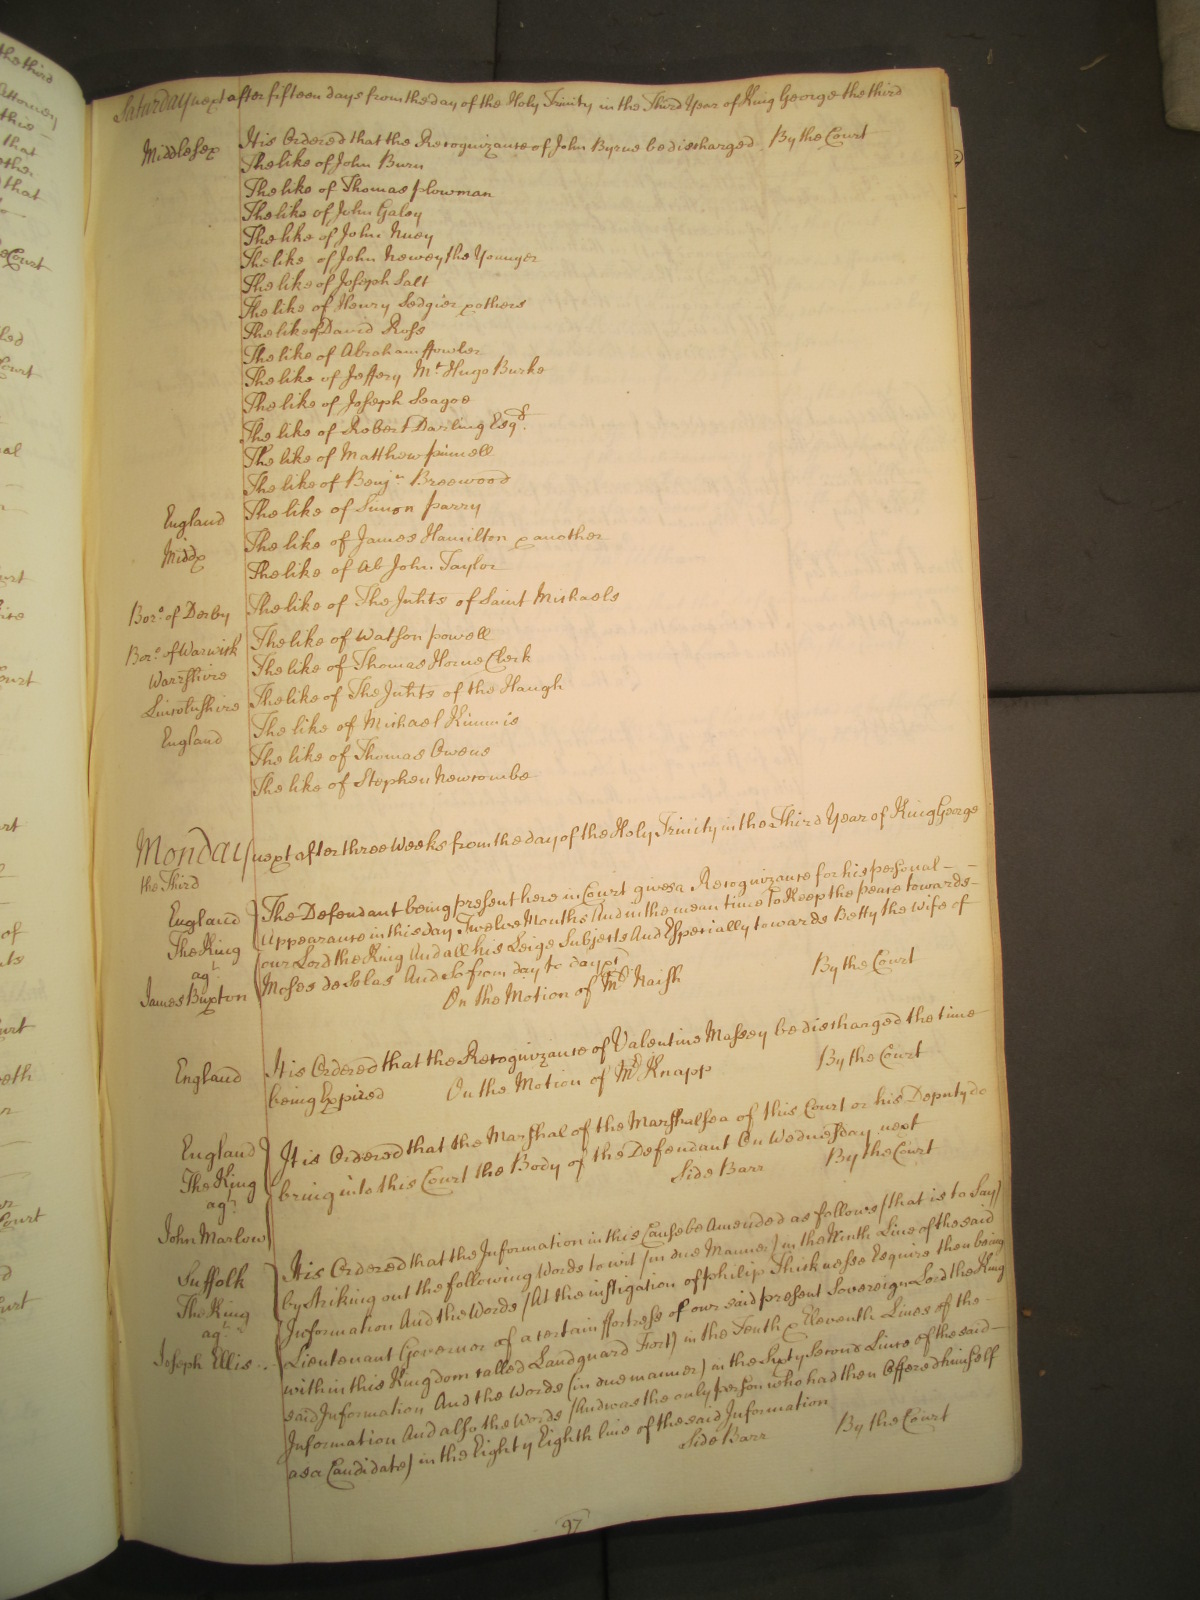 Saturday next after fifteen days from the day of the Holy Trinity in the Third Year of King George the third
Middlesex It is Ordered that the Recognizance of John Byrne be discharged By the Court
The like of John Burn
The like of Thomas Plowman
The like of John Galey
The like of John Nuey
The like of John Newey the Younger
The like of Joseph Salt
The like of Henry Sedgier & others
The like of David Rose
The like of Abraham ffowler
The like of Jeffery Mt Hugo Burke
The like of Joseph Seagoe
The like of Robert Darling Esqr.
The like of Matthew pinnell
The like of Benjn Breewood
England The like of Simon parry
Middx The like of James Hamilton & another
The like of Al John Taylor
Boro. of Derby The like of The Inhts of Saint Michaels
Boro. of Warwick The like of Watson powell
Warrshire The like of Thomas Horne Clerk
Lincolnshire The like of The Inhts of the Haugh
England The like of Michael Kimmis
The like of Thomas Owens
The like of Stephen Newcombe
Monday next after three Weeks from the day of the Holy Trinity in the Third Year of King George
the Third
England The Defendant being present here in Court gives a Recognizance for his personal
The King Appearance in this day Twelve Months And in the mean time to Keep the peace towards
agt. our Lord the King And all his Leige Subjects And Especially towards Betty the Wife of
James Buxton Moses de Salas And So from day to day &c By the Court
On the Motion of Mr. Naish
England It is Ordered that the Recognizance of Valentine Massey be discharged the time
being Expired On the Motion of Mr. Knapp By the Court
England It is Ordered that the Marshal of the Marshalsea of this Court or his Deputy do
The King bring into this Court the Body of the Defendant On Wednesday next
agt. Side Barr By the Court
John Marlow
Suffolk It is Ordered that the Information in this Cause be Amended as follows (that is to Say)
The King by Striking out the following Words to wit (in due Manner) in the Ninth Line of the said
agt. Information And the Words (At the instigation of philip Thicknesse Esquire then being
Joseph Ellis Lieutenant Governor of a certain ffortress of our said present Sovereign Lord the King
within this Kingdom called Landguard Fort) in the Tenth & Eleventh Lines of the
said Information And the Words (in due manner) in the Sixty Second Line of the said
Information And also the Words (And was the only person who had then Offered himself
as a Candidate) in the Eighty Eighth line of the said Information
Side Barr By the Court
97